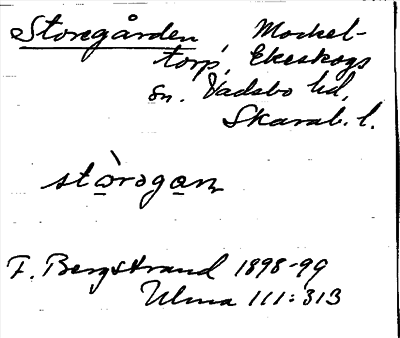 Storegården, Mockel-
torp, Ekeskogs
sn. Vadsbo hd,
Skarab. l.
stò̱rəga̱n
F. Bergstrand 1898-99
Ulma 111:313